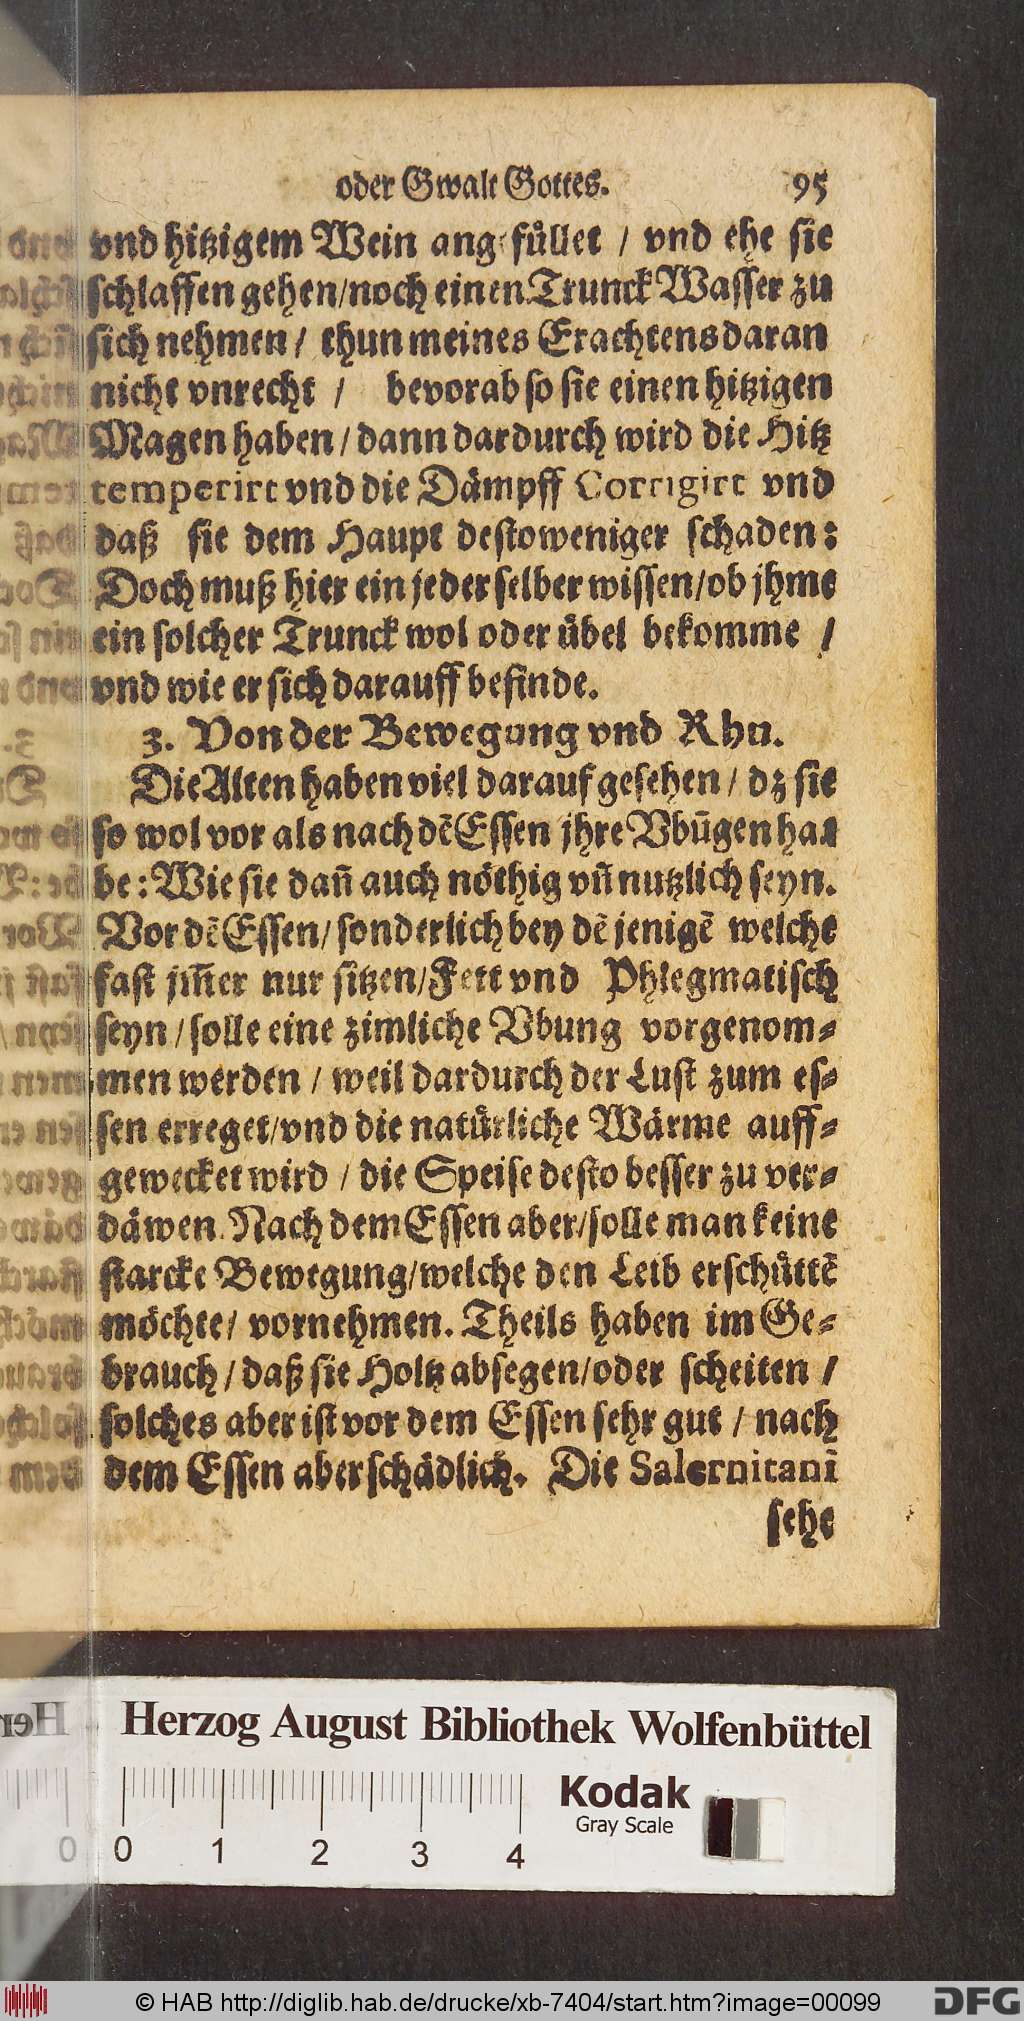 oder Gwalt Gottes. 95
vnd hitzigem Wein angefüllet / vnd ehe sie
schlaffen gehen/noch einen Trunck Wasser zu
sich nehmen / thun meines Erachtens daran
nicht vnrecht / bevorab so sie einen hitzigen
Magen haben / dann dardurch wird die Hitz
temperirt vnd die Dämpff Corrigirt vnd
daß sie dem Haupt destoweniger schaden:
Doch muß hier ein jeder selber wissen/ob jhme
ein solcher Trunck wol oder übel bekomme /
vnd wie er sich darauff befinde.
3. Von der Bewegung vnd Rhu.
Die Alten haben viel darauf gesehen / dz sie
so wol vor als nach dẽ Essen jhre Vbũgen hat
be: Wie sie dañ auch nöthig vñ nutzlich seyn.
Vor dẽ Essen/ sonderlich bey dẽ jenigẽ welche
fast jm̃er nur sitzen/Fett vnd Phlegmatisch
seyn / solle eine zimliche Vbung vorgenom-
men werden / weil dardurch der Lust zum es-
sen erreget/vnd die natürliche Wärme auff-
gewecket wird / die Speise desto besser zu ver-
däwen. Nach dem Essen aber/solle man keine
starcke Bewegung/welche den Leib erschüttẽ
möchte/ vornehmen. Theils haben im Ge-
brauch / daß sie Holtz absegen/oder scheiten /
solches aber ist vor dem Essen sehr gut / nach
dem Essen aber schädlich. Die Salernitani
sehe
Herzog August Bibliothek Wolfenbüttel
Kodak
Gray Scale
0 0 1 2 3 4
© HAB http://diglib.hab.de/drucke/xb-7404/start.htm?image=00099
DFG